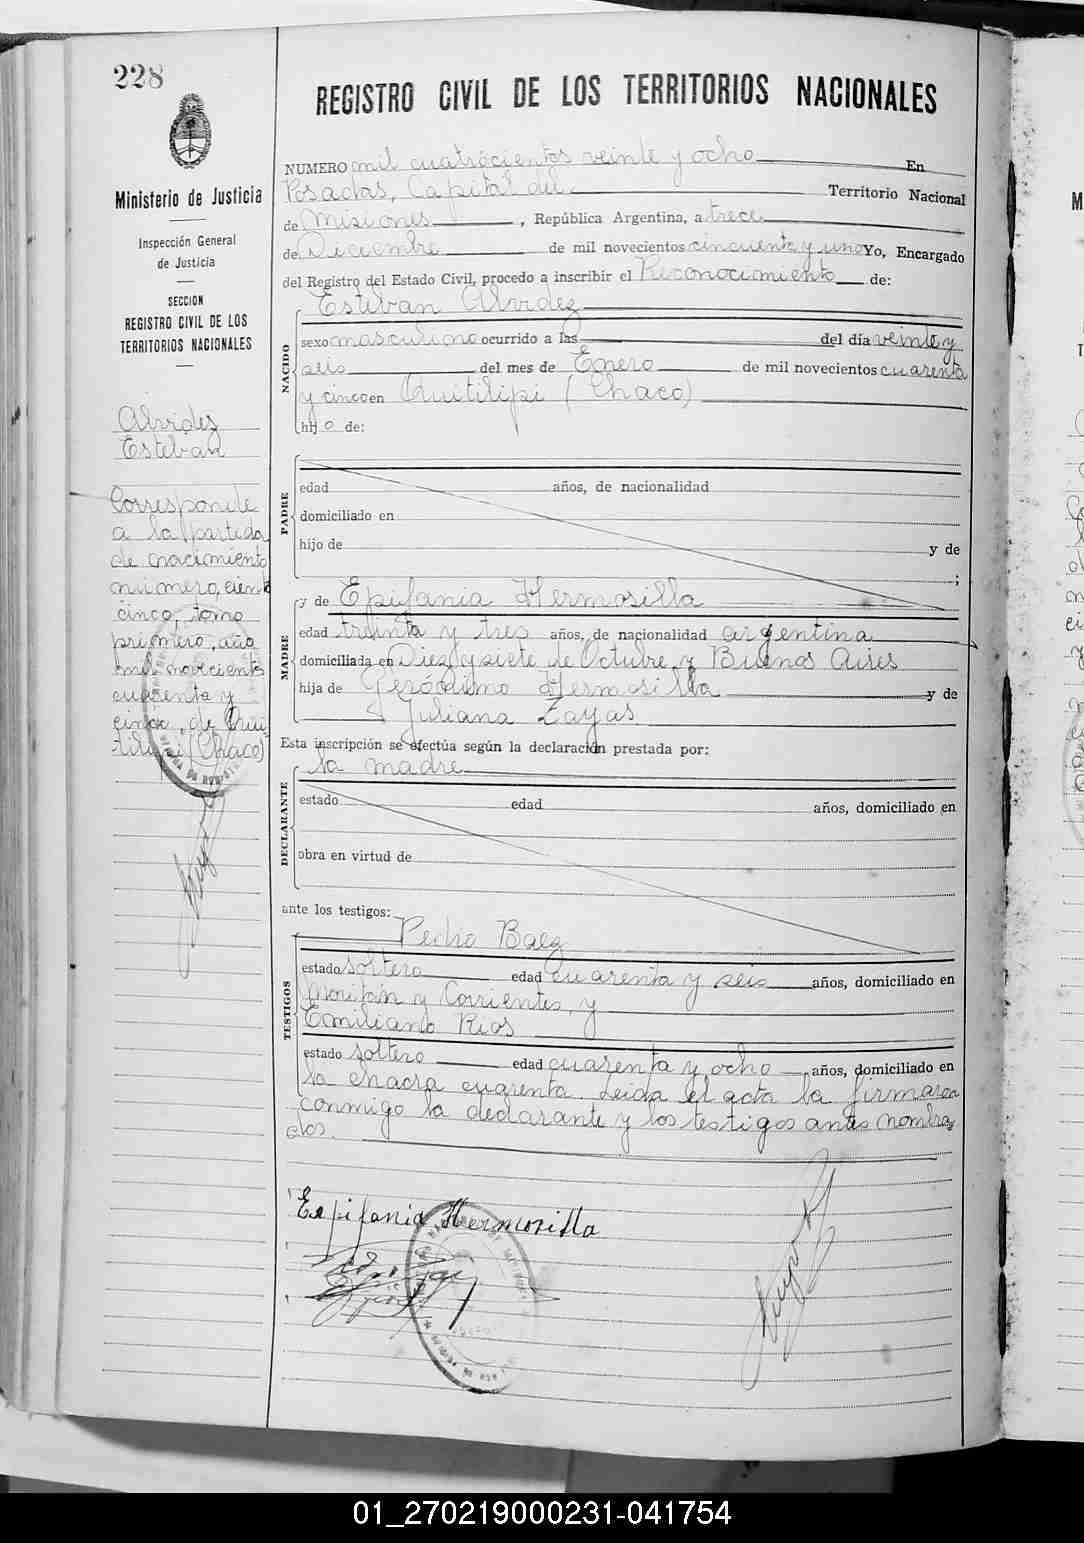 228
REGISTRO CIVIL DE LOS TERRITORIOS NACIONALES
Ministerio de Justicia
Inspección General
de Justicia
SECCIÓN
REGISTRO CIVIL DE LOS
TERRITORIOS NACIONALES
Alvidez
Esteban
Corresponde
a la partida
de nacimiento
numero, ciento
cinco, tomo
primero, año
mil novecientos
cuarenta y
cinco, de Qui-
tilipi (Chaco)
NUMERO mil cuatrocientos veinte y ocho En
Posadas, Capital del Territorio Nacional
de Misiones, República Argentina, a trece
de Diciembre de mil novecientos cincuenta y uno Yo, Encargado
del Registro del Estado Civil, procedo a inscribir el Reconocimiento de:
Esteban Alvidez
NACIDO
sexo masculino ocurrido a las del día veinte y
seis del mes de Enero de mil novecientos cuarenta
y cinco en Quitilipi (Chaco)
hijo de:
PADRE
edad años, de nacionalidad
domiciliado en
hijo de y de
;
y de Epifania Hermosilla
MADRE
edad treinta y tres años, de nacionalidad argentina
domiciliada en Diez y siete de Octubre y Buenos Aires
hija de Gerónimo Hermosilla y de
Juliana Zayas
Esta inscripción se efectúa según la declaración prestada por:
la madre
DECLARANTE
estado edad años, domiciliado en
obra en virtud de
ante los testigos:
Pedro Baez
TESTIGOS
estado soltero edad cuarenta y seis años, domiciliado en
y Corrientes, y
Emiliano Rios
estado soltero edad cuarenta y ocho, años, domiciliado en
la chacra cuarenta. Leida el acta la firmaron
conmigo la declarante y los testigos antes nombra
dos.
Epifania Hermosilla
01_270219000231-041754